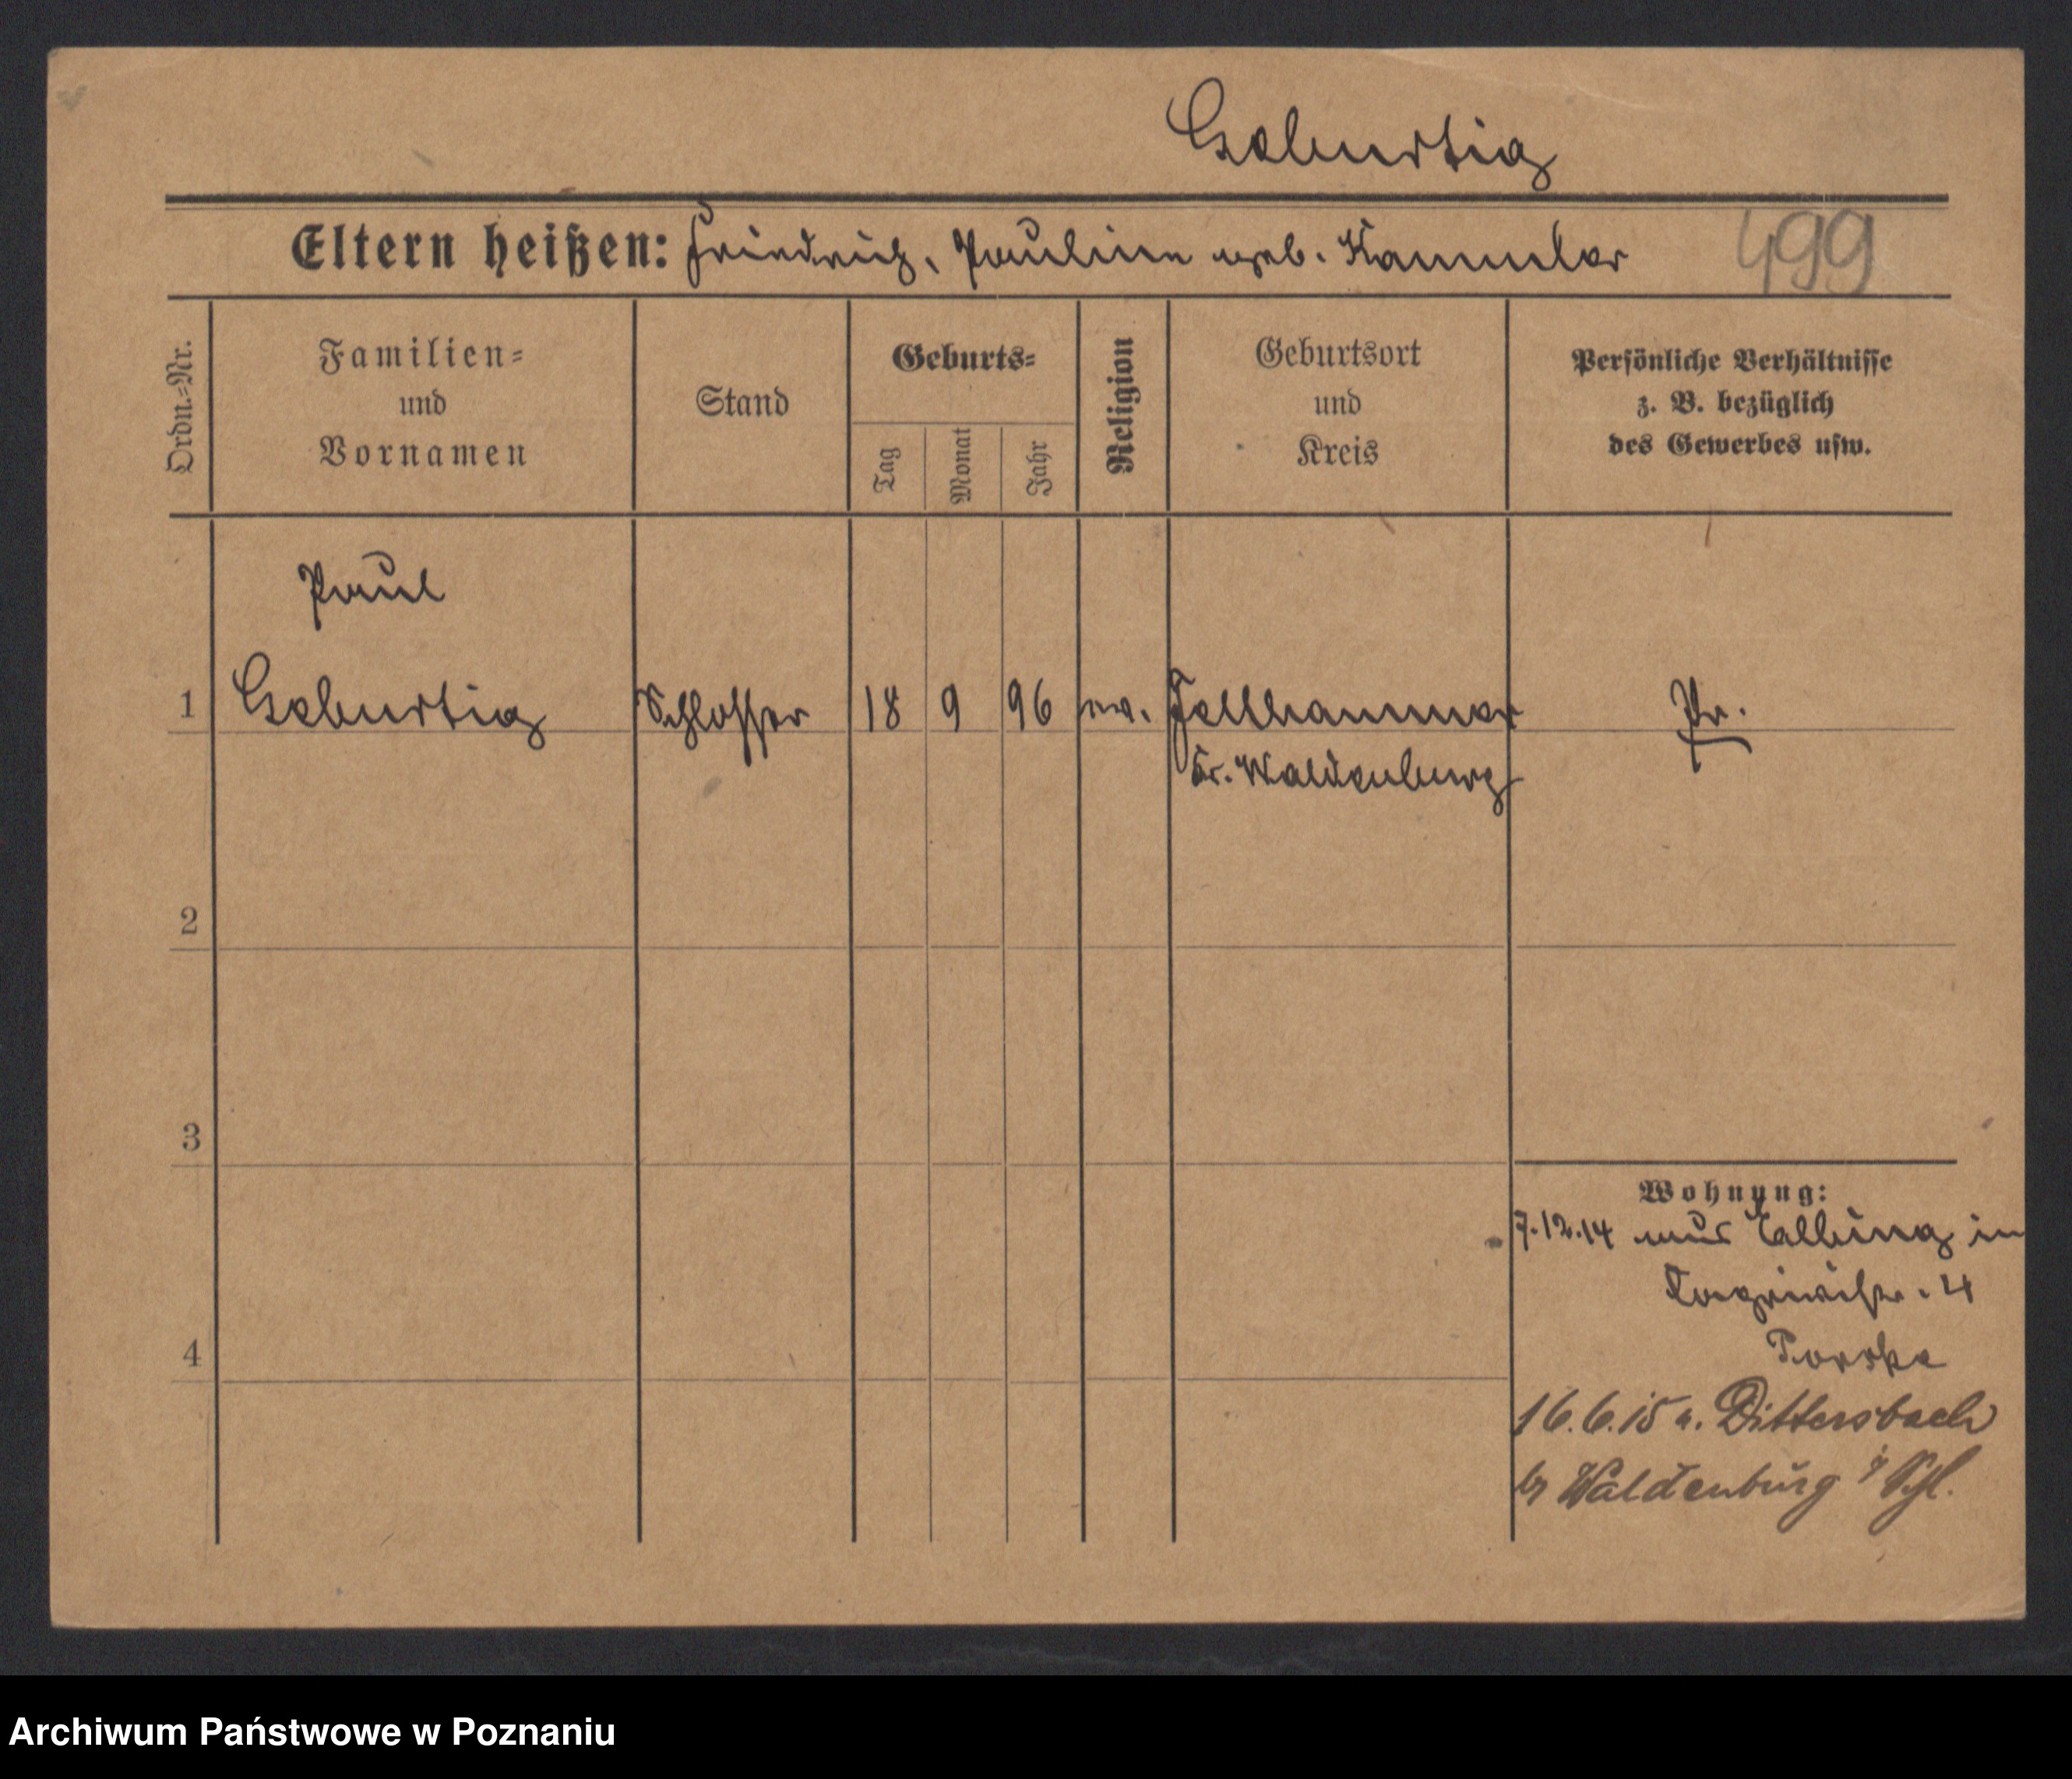 Geburtig
Eltern heißen: Friedrich, Pauline geb. Kammler 499
Ordn.=Nr. Familien= und Vornamen Stand Geburts= Tag Monat Jahr Religion Geburtsort und Kreis Persönliche Verhältnisse z. B. bezüglich des Gewerbes usw.
Paul
1 Geburtig Schlosser 18 9 96 ev. Fellhammer Pr.
Kr. Waldenburg
2
3
Wohnung:
7.12.14 aus Elbing in
4
16.6.15 n. Dittersbach
b/ Waldenburg i/ Schl.
Archiwum Państwowe w Poznaniu